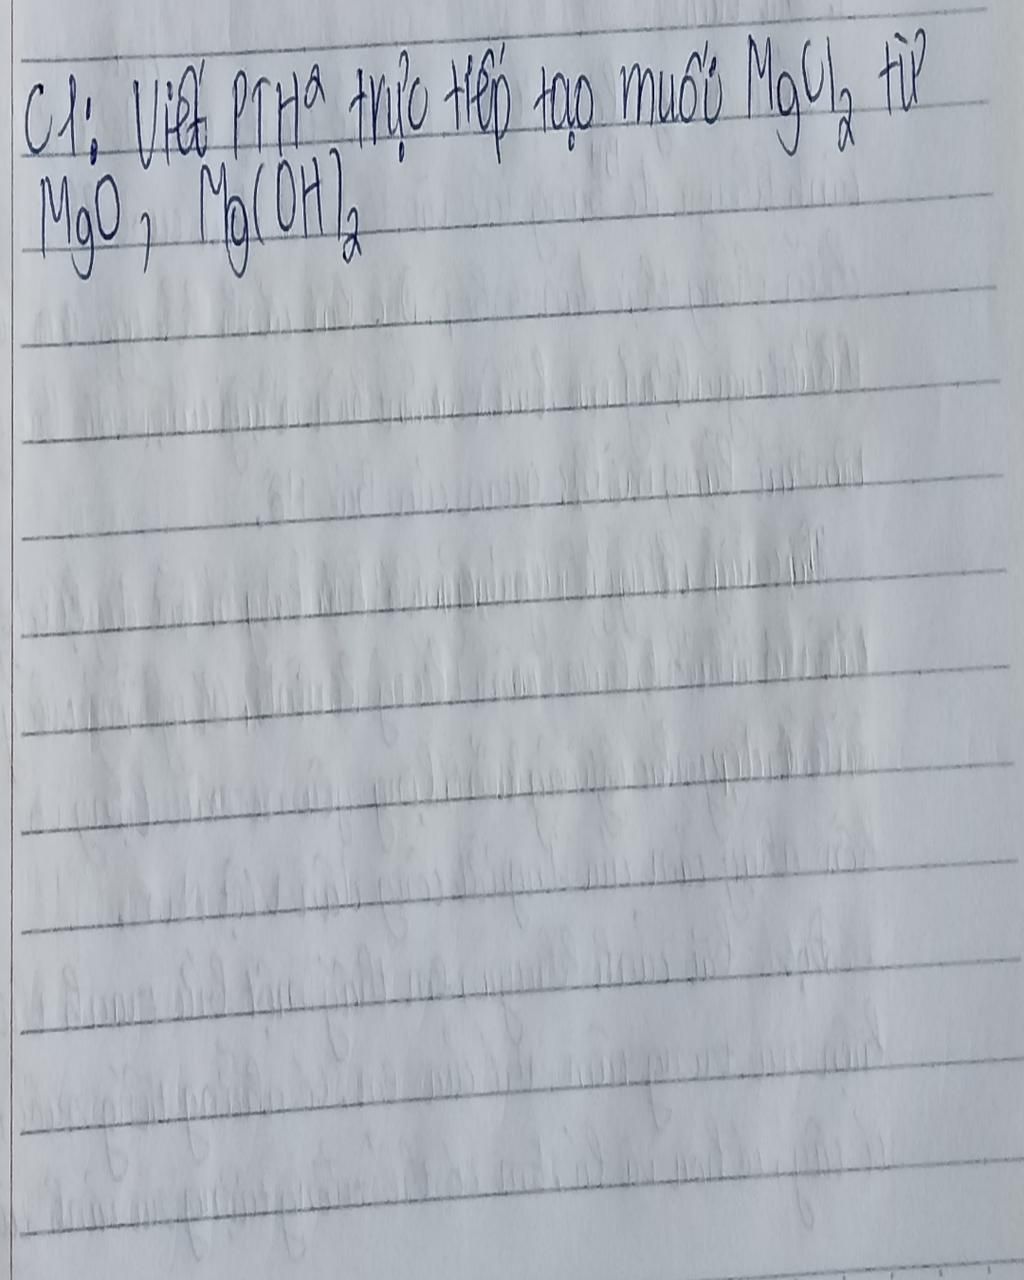 C1: Viết PTHH trực tiếp tạo muối MgCl2 từ
MgO, Mg(OH)2